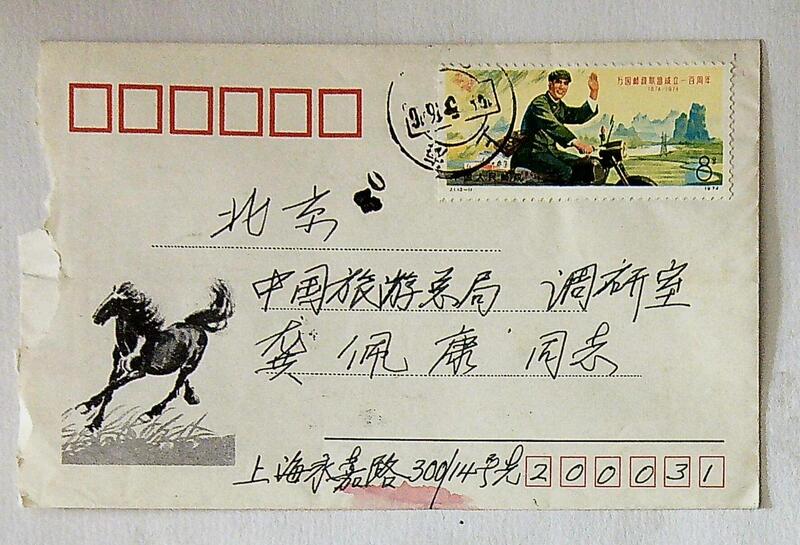 万国邮政联盟成立一百周年
1874-1974
8
1974
北京
中国旅游总局 调研室
龚佩康 同志
上海永嘉路300/14号 200031